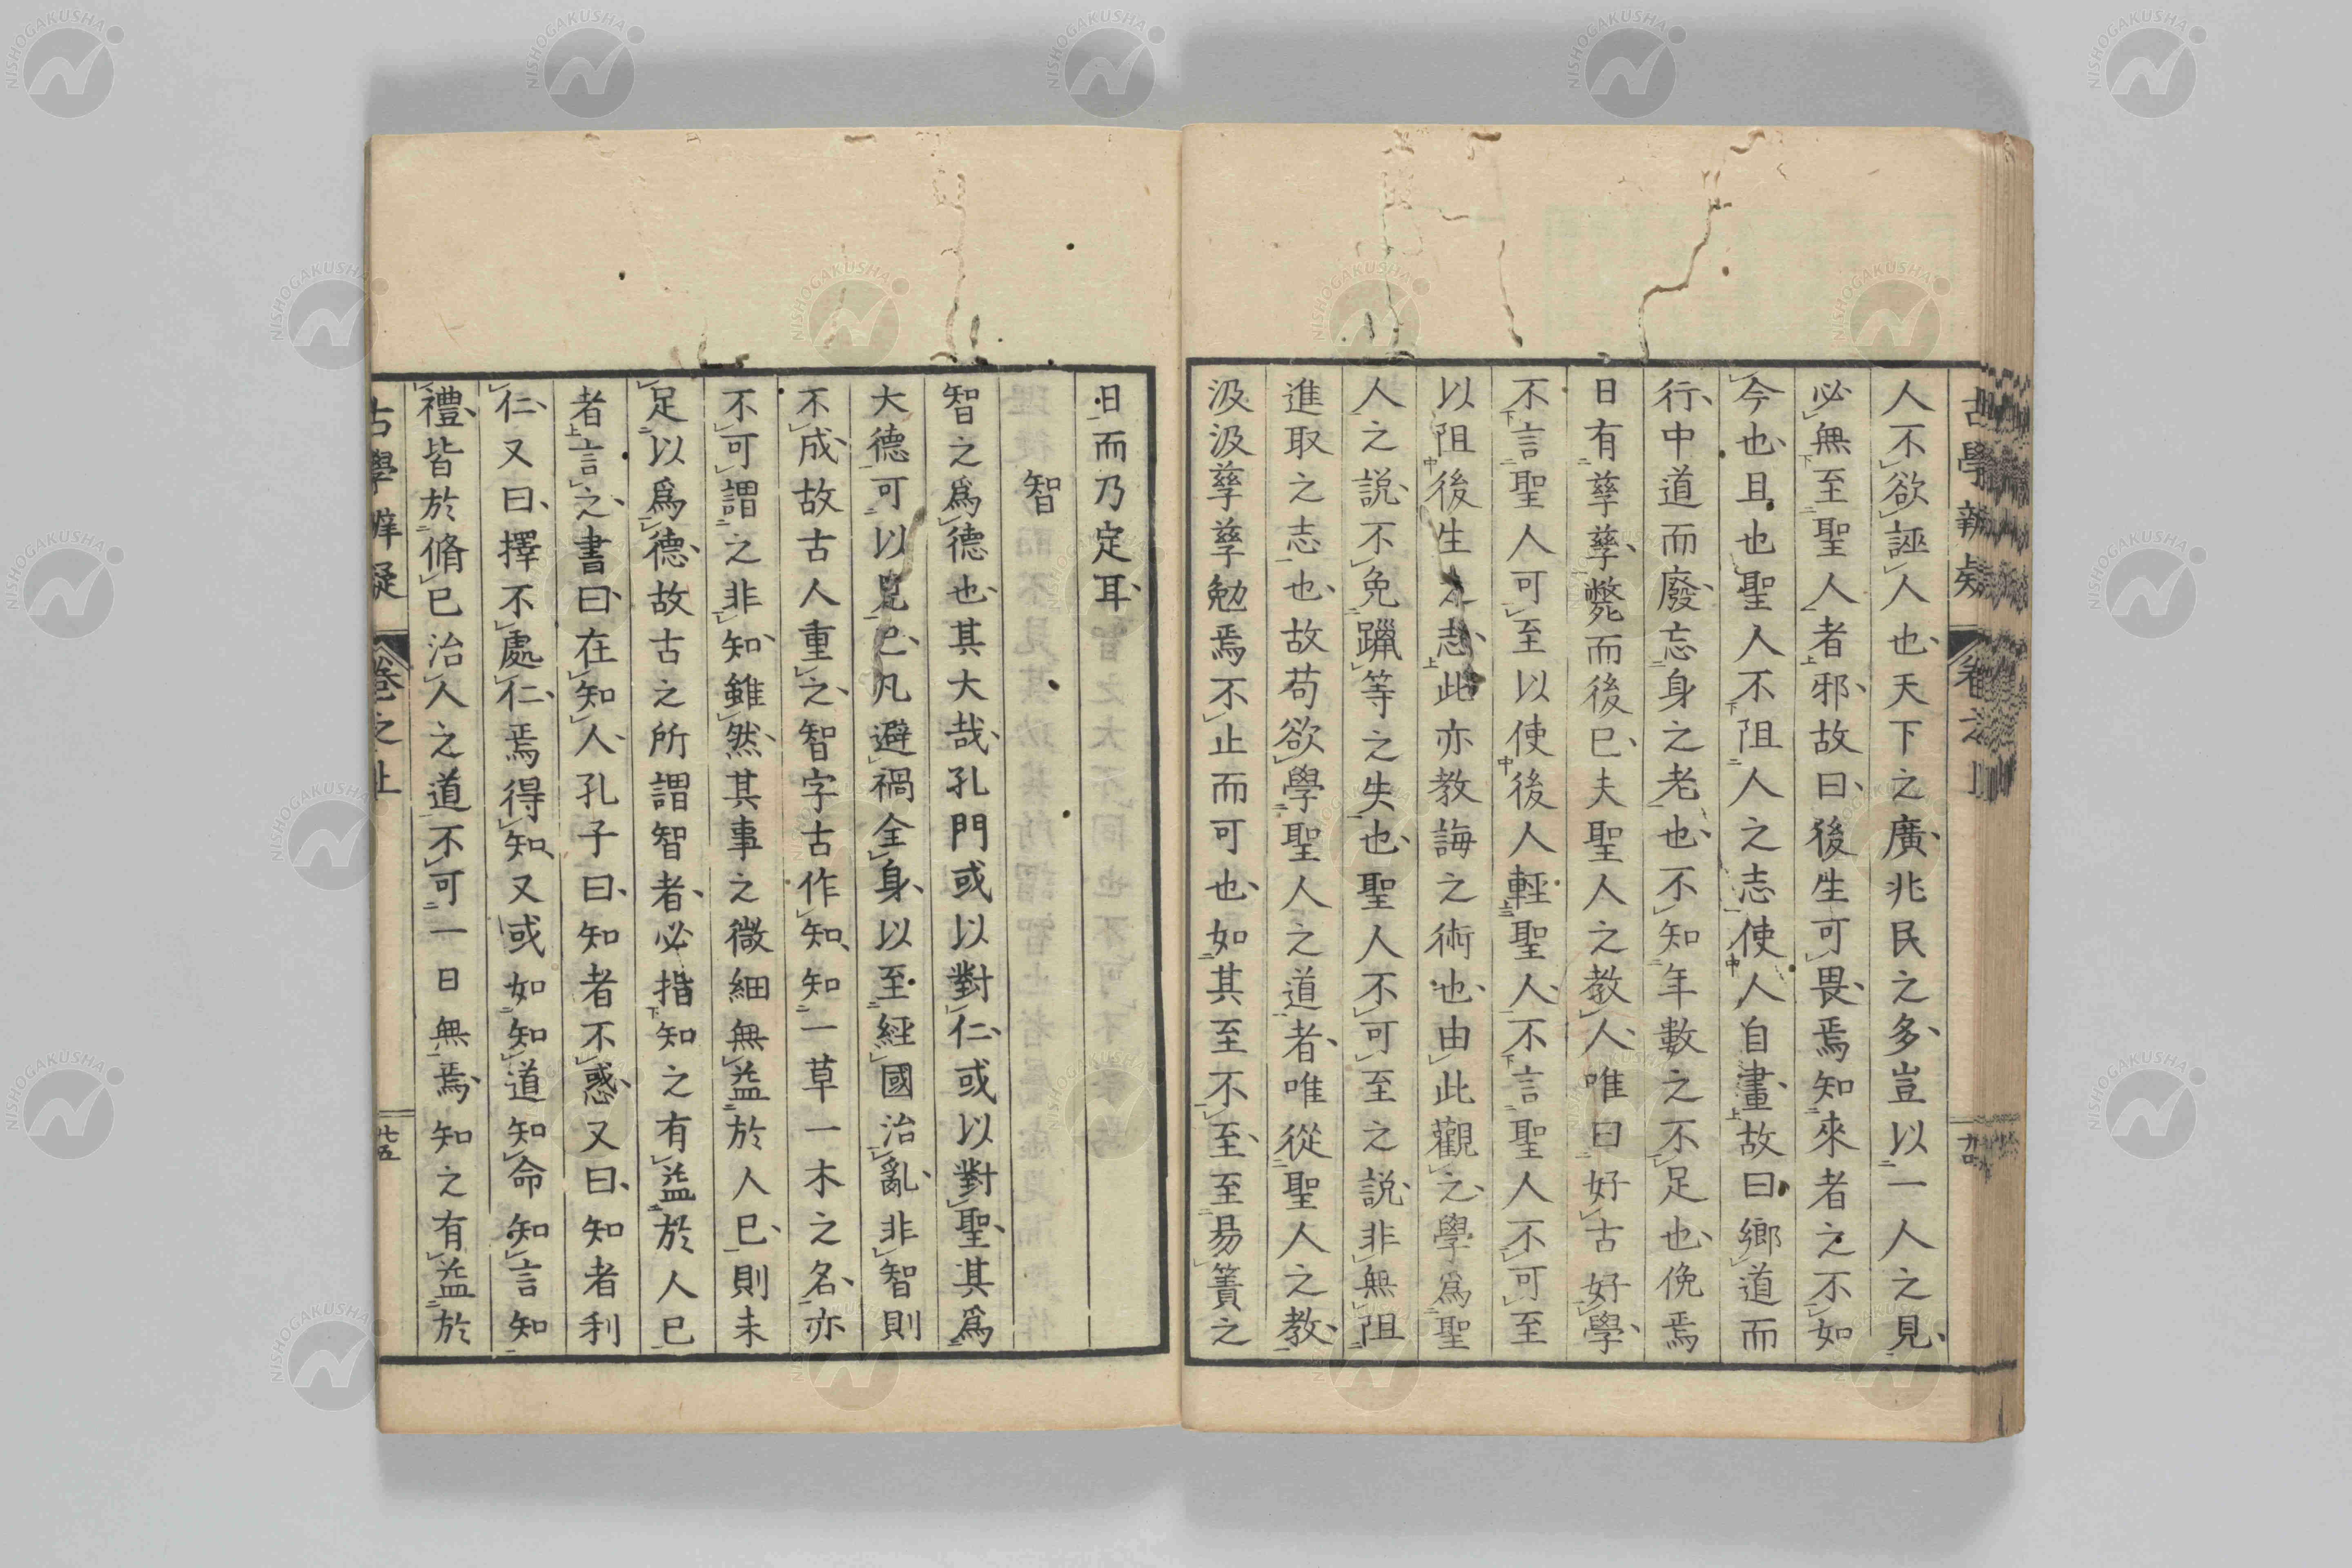 人不欲誣人也天下之廣兆民之多豈以一人之見
必無至聖人者邪故曰後生可畏焉知來者之不如
今也且也聖人不阻人之志使人自畫故曰鄉道而
行中道而廢忘身之老也不知年數之不足也俛焉
日有孳孳斃而後已夫聖人之教人唯曰好古好學
不言聖人可至以使後人輕聖人不言聖人不可至
以阻後生之志此亦教誨之術也由此觀之學爲聖
人之說不免躐等之失也聖人不可至之說非無阻
進取之志也故苟欲學聖人之道者唯從聖人之教
汲汲孳孳勉焉不止而可也如其至不至至易簀之
日而乃定耳
智
智之爲德也其大哉孔門或以對仁或以對聖其爲
大德可以見已凡避禍全身以至經國治亂非智則
不成故古人重之智字古作知知一草一木之名亦
不可謂之非知雖然其事之微細無益於人已則未
足以爲德故古之所謂智者必指知之有益於人已
者言之書曰在知人孔子曰知者不惑又曰知者利
仁又曰擇不處仁焉得知又或如知道知命知言知
禮皆於脩已治人之道不可一日無焉知之有益於
古學辨疑
卷之上
七五
NISHOGAKUSHA